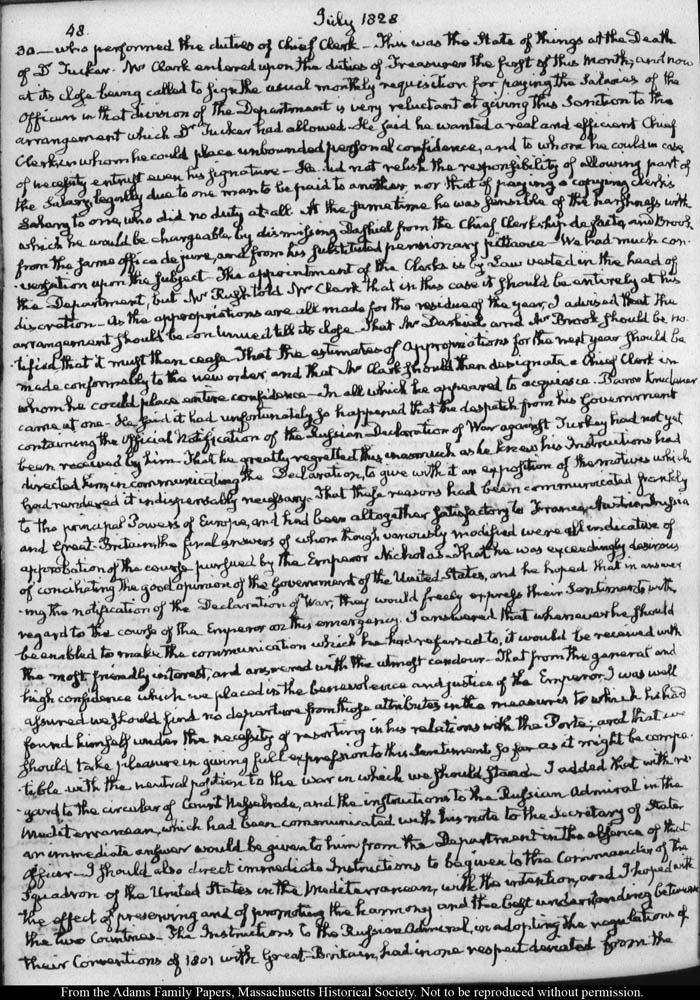 48.
July 1828
30_ who performed the duties of Chief Clerk_ This was the State of things at the Death
of Dr Tucker. Mr Clark entered upon the duties of Treasurer the first of this Month, and now
at its close being called to sign the usual monthly requisition for paying the Salaries of the
Officers in that division of the Department is very reluctant at giving this Sanction to the
arrangement which Dr Tucker had allowed. He said he wanted a real and efficient Chief
Clerk, in whom he could place unbounded personal confidence, and to whom he could in case
of necessity entrust even his signature_ He did not relish the responsibility of allowing part of
the Salary legally due to one man to be paid to another nor that of paying a copying clerk's
Salary to one, who did no duty at all. At the same time he was sensible of the harshness with
which he would be chargeable, by dismissing Dashiel from the Chief Clerkship de facto, and Brook
from the same office de jure, and from his substituted pensionary pittance_ We had much con-
-versation upon the subject_ The appointment of the Clerks is by Law vested in the head of
the Department, but Mr Rush told Mr Clark that in this case it should be entirely at his
discretion_ As the appropriations are all made for the residue of the year, I advised that the
arrangement should be continued till its close_ That Mr Dashiel and Mr Brook should be no
-tified that it must then cease_ That the estimates of Appropriations for the next year should be
made conformably to the new order and that Mr Clark should then designate a Chief Clerk in
whom he could place entire confidence_ In all which he appeared to acquiesce. Baron Krudener
came at one_ He said it had unfortunately so happened that the despatch from his Government
containing the Official Notification of the Russian Declaration of War against Turkey had not yet
been received by him. That he greatly regretted this, inasmuch as he knew his Instructions had
directed him, in communicating the Declaration, to give with it an exposition of the motives which
had rendered it indispensably necessary. That these reasons had been communicated frankly
to the principal Powers of Europe, and had been altogether satisfactory to France, Austria, Prussia
and Great-Britain, the final answers of whom though variously modified were all indicative of
approbation of the course pursued by the Emperor Nicholas. That he was exceedingly desirous
of conciliating the good opinion of the Government of the United States, and he hoped that in answer
-ing the notification of the Declaration of War, they would freely express their Sentiments with
regard to the course of the Emperor on this emergency. I answered that whenever he should
be enabled to make the communication which he had referred to, it would be received with
the most friendly interest, and answered with the utmost candour_ That from the general and
high confidence which we placed in the benevolence and justice of the Emperor I was well
assured we should find no departure from those attributes in the measures to which he had
found himself under the necessity of resorting in his relations with the Porte; and that we
should take pleasure in giving full expression to this Sentiment so far as it might be compa-
-tible with the neutral position to the war in which we should stand_ I added that with re-
-gard to the circular of Count Nesselrode, and the instructions to the Russian Admiral in the
Mediterranean, which had been communicated with his note to the Secretary of State
an immediate answer would be given to him from the Department in the absence of that
Officer_ I should also direct immediate Instructions to be given to the Commander of the
Squadron of the United States in the Mediterranean, with the intention, and I hoped with
the effect of preserving and of promoting the harmony and the best understanding between
the two Countries_ The Instructions to the Russian Admiral, in adopting the regulations of
their Conventions of 1801 with Great-Britain, had in one respect deviated from the
From the Adams Family Papers, Massachusetts Historical Society. Not to be reproduced without permission.